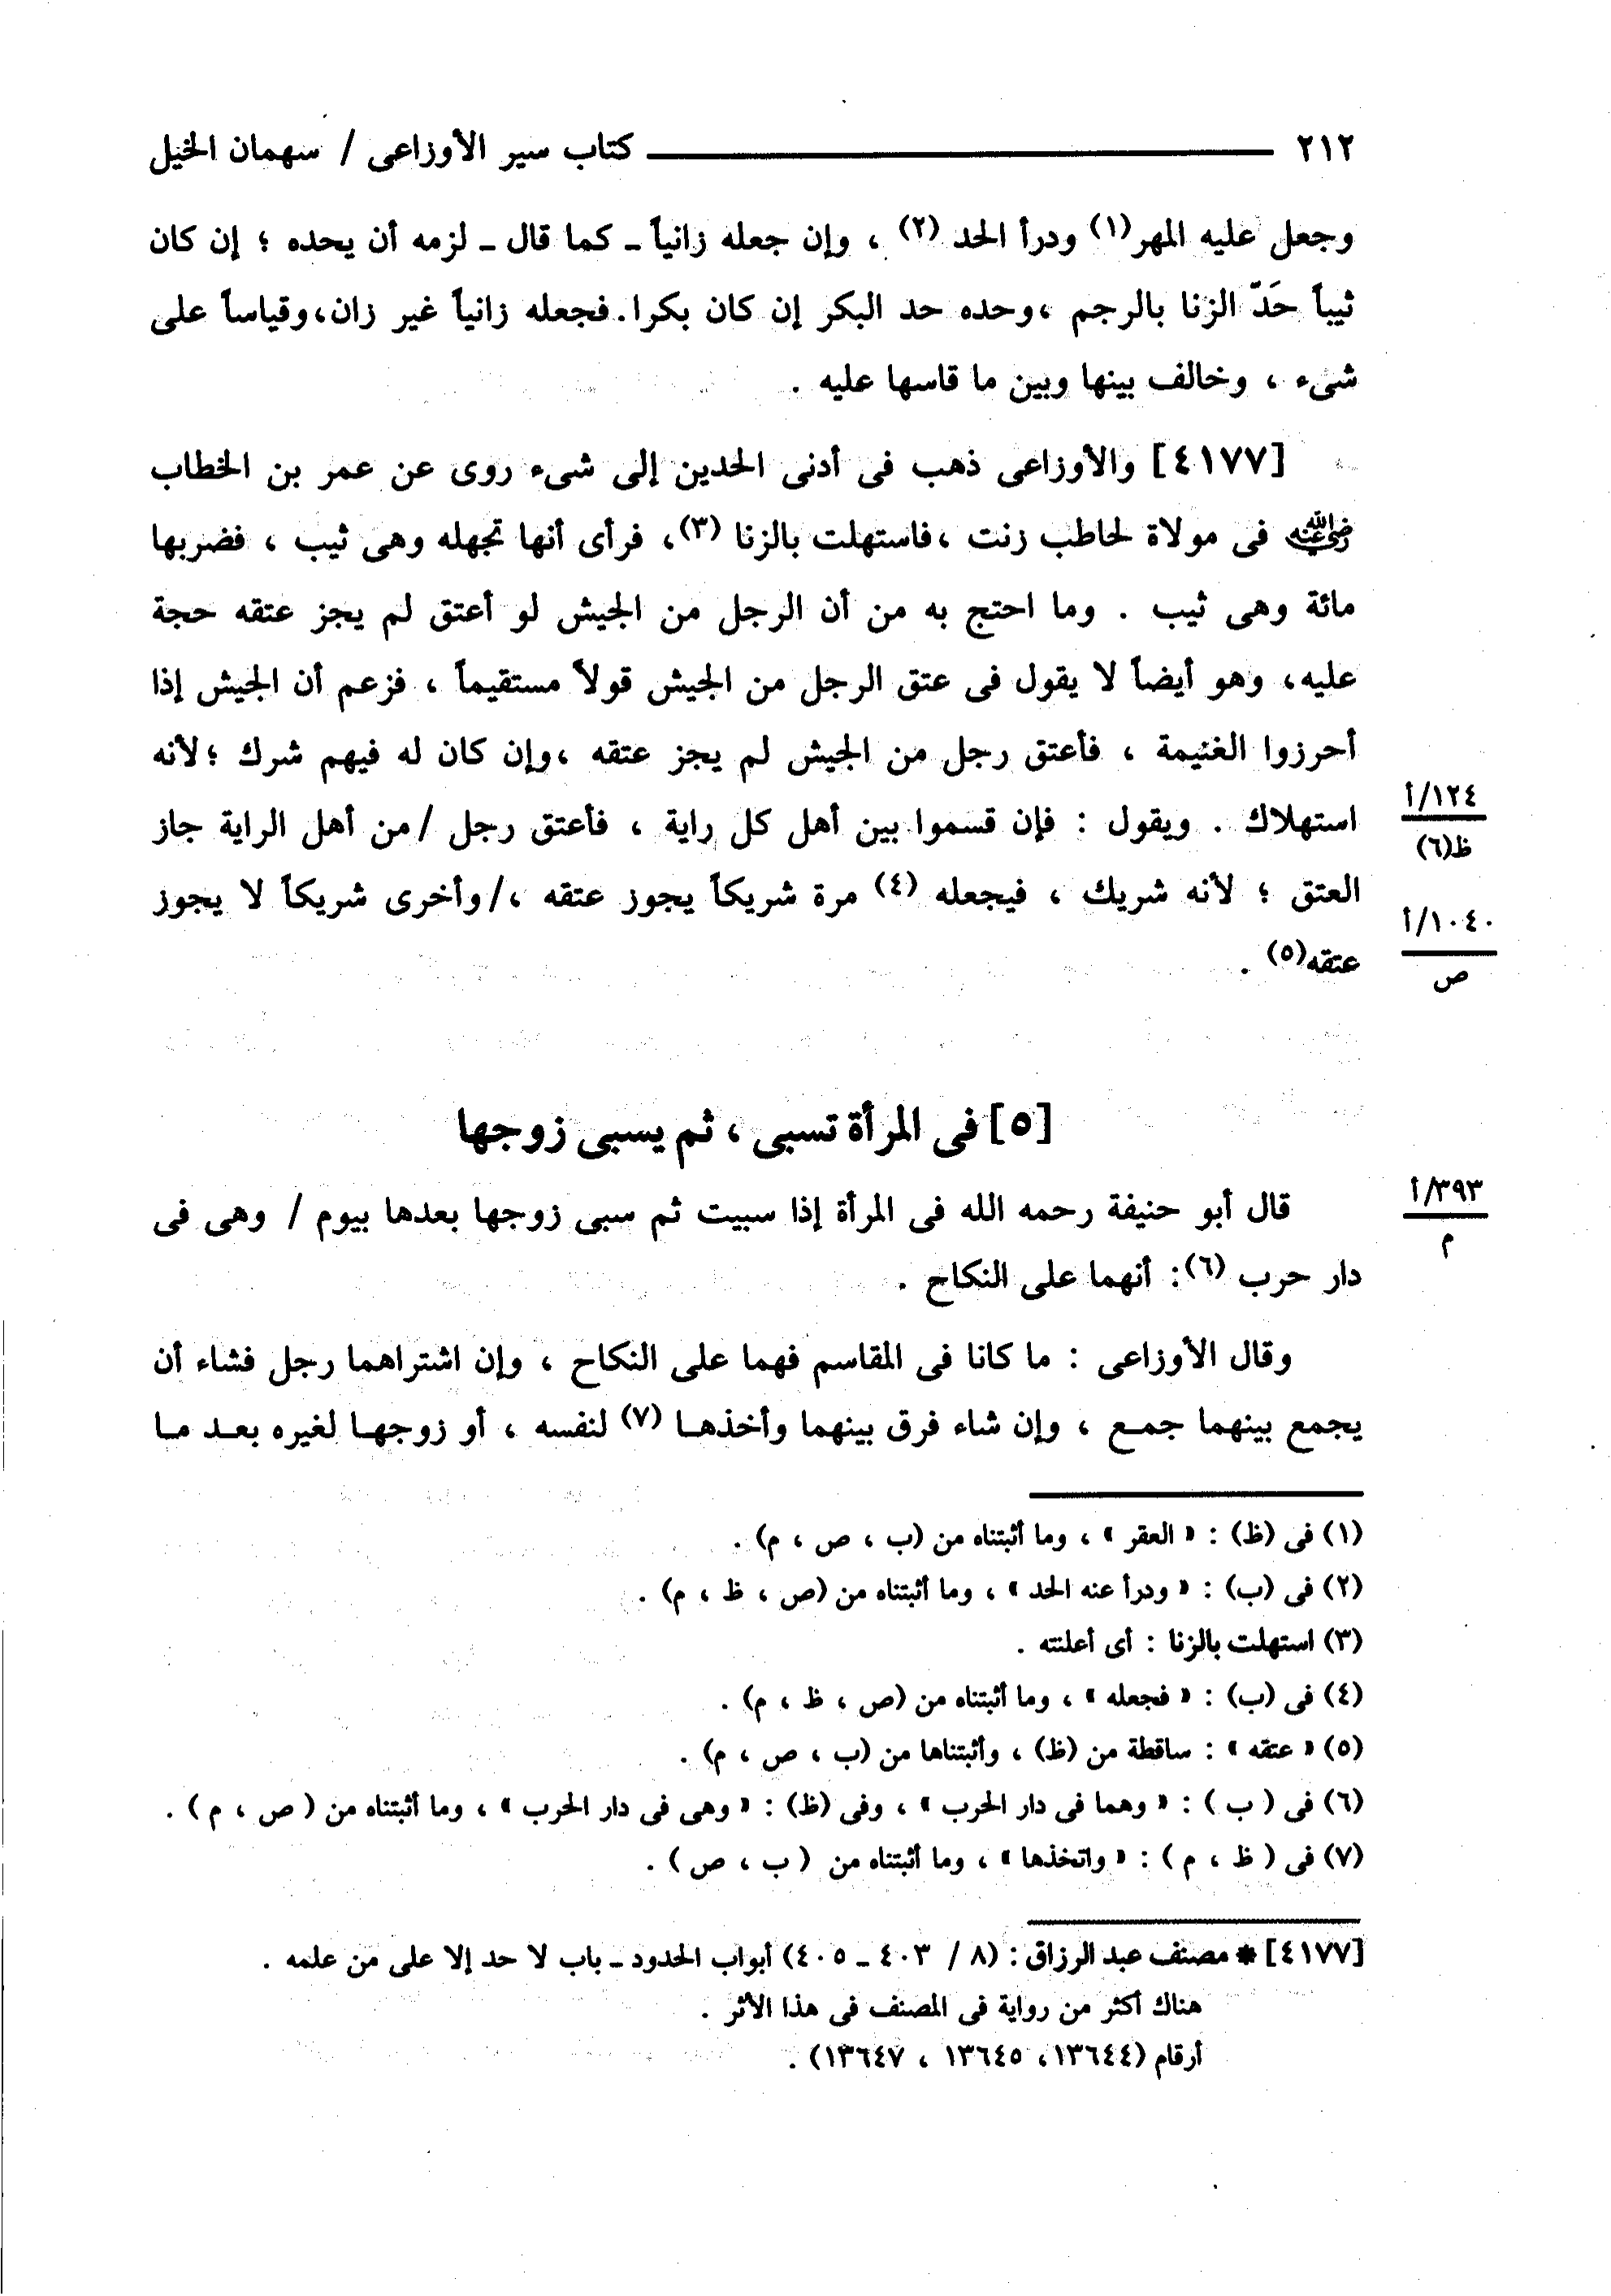 ٢١٢ ــــــــــــــــــــ كتاب سير الأوزاعى / سهمان الخيل
وجعل عليه المهر(١) ودرأ الحد (٢) ، وإن جعله زانياً ـ كما قال ـ لزمه أن يحده ؛ إن كان
ثيباً حَدَّ الزنا بالرجم ،وحده حد البكر إن كان بكرا.فجعله زانياً غير زان،وقياساً على
شىء ، وخالف بينها وبين ما قاسها عليه .
[٤١٧٧] والأوزاعى ذهب فى أدنى الحدين إلى شىء روى عن عمر بن الخطاب
رضي الله عنه فى مولاة لحاطب زنت ،فاستهلت بالزنا (٣)، فرأى أنها تجهله وهى ثيب ، فضربها
مائة وهى ثيب . وما احتج به من أن الرجل من الجيش لو أعتق لم يجز عتقه حجة
عليه، وهو أيضاً لا يقول فى عتق الرجل من الجيش قولاً مستقيماً ، فزعم أن الجيش إذا
أحرزوا الغنيمة ، فأعتق رجل من الجيش لم يجز عتقه ،وإن كان له فيهم شرك ؛لأنه
استهلاك . ويقول : فإن قسموا بين أهل كل راية ، فأعتق رجل /من أهل الراية جاز
١٢٤/أ
ظ(٦)
العتق ؛ لأنه شريك ، فيجعله (٤) مرة شريكاً يجوز عتقه ،/وأخرى شريكاً لا يجوز
١٠٤٠/أ
ص
عتقه(٥) .
[٥] فى المرأة تسبى ، ثم يسبى زوجها
قال أبو حنيفة رحمه الله فى المرأة إذا سبيت ثم سبى زوجها بعدها بيوم / وهى فى
٣٩٣/أ
م
دار حرب (٦): أنهما على النكاح .
وقال الأوزاعى : ما كانا فى المقاسم فهما على النكاح ، وإن اشتراهما رجل فشاء أن
يجمع بينهما جمـع ، وإن شاء فرق بينهما وأخذهـا (٧) لنفسه ، أو زوجهـا لغيره بعـد مـا
(١) فى (ظ) : « العقر » ، وما أثبتناه من (ب ، ص ، م) .
(٢) فى (ب) : « ودرأ عنه الحد » ، وما أثبتناه من (ص ، ظ ، م) .
(٣) استهلت بالزنا : أى أعلنته .
(٤) فى (ب) : « فجعله » ، وما أثبتناه من (ص ، ظ ، م) .
(٥) « عتقه » : ساقطة من (ظ) ، وأثبتناها من (ب ، ص ، م) .
(٦) فى ( ب ) : « وهما فى دار الحرب » ، وفى (ظ) : « وهى فى دار الحرب » ، وما أثبتناه من ( ص ، م ) .
(٧) فى ( ظ ، م ) : « واتخذها » ، وما أثبتناه من ( ب ، ص ) .
[٤١٧٧] * مصنف عبد الرزاق : (٨ / ٤٠٣ ـ ٤٠٥) أبواب الحدود ـ باب لا حد إلا على من علمه .
هناك أكثر من رواية فى المصنف فى هذا الأثر .
أرقام (١٣٦٤٤، ١٣٦٤٥ ، ١٣٦٤٧) .